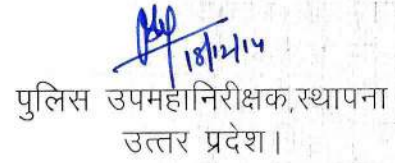 18/12/14
पुलिस उपमहानिरीक्षक,स्थापना
उत्तर प्रदेश।